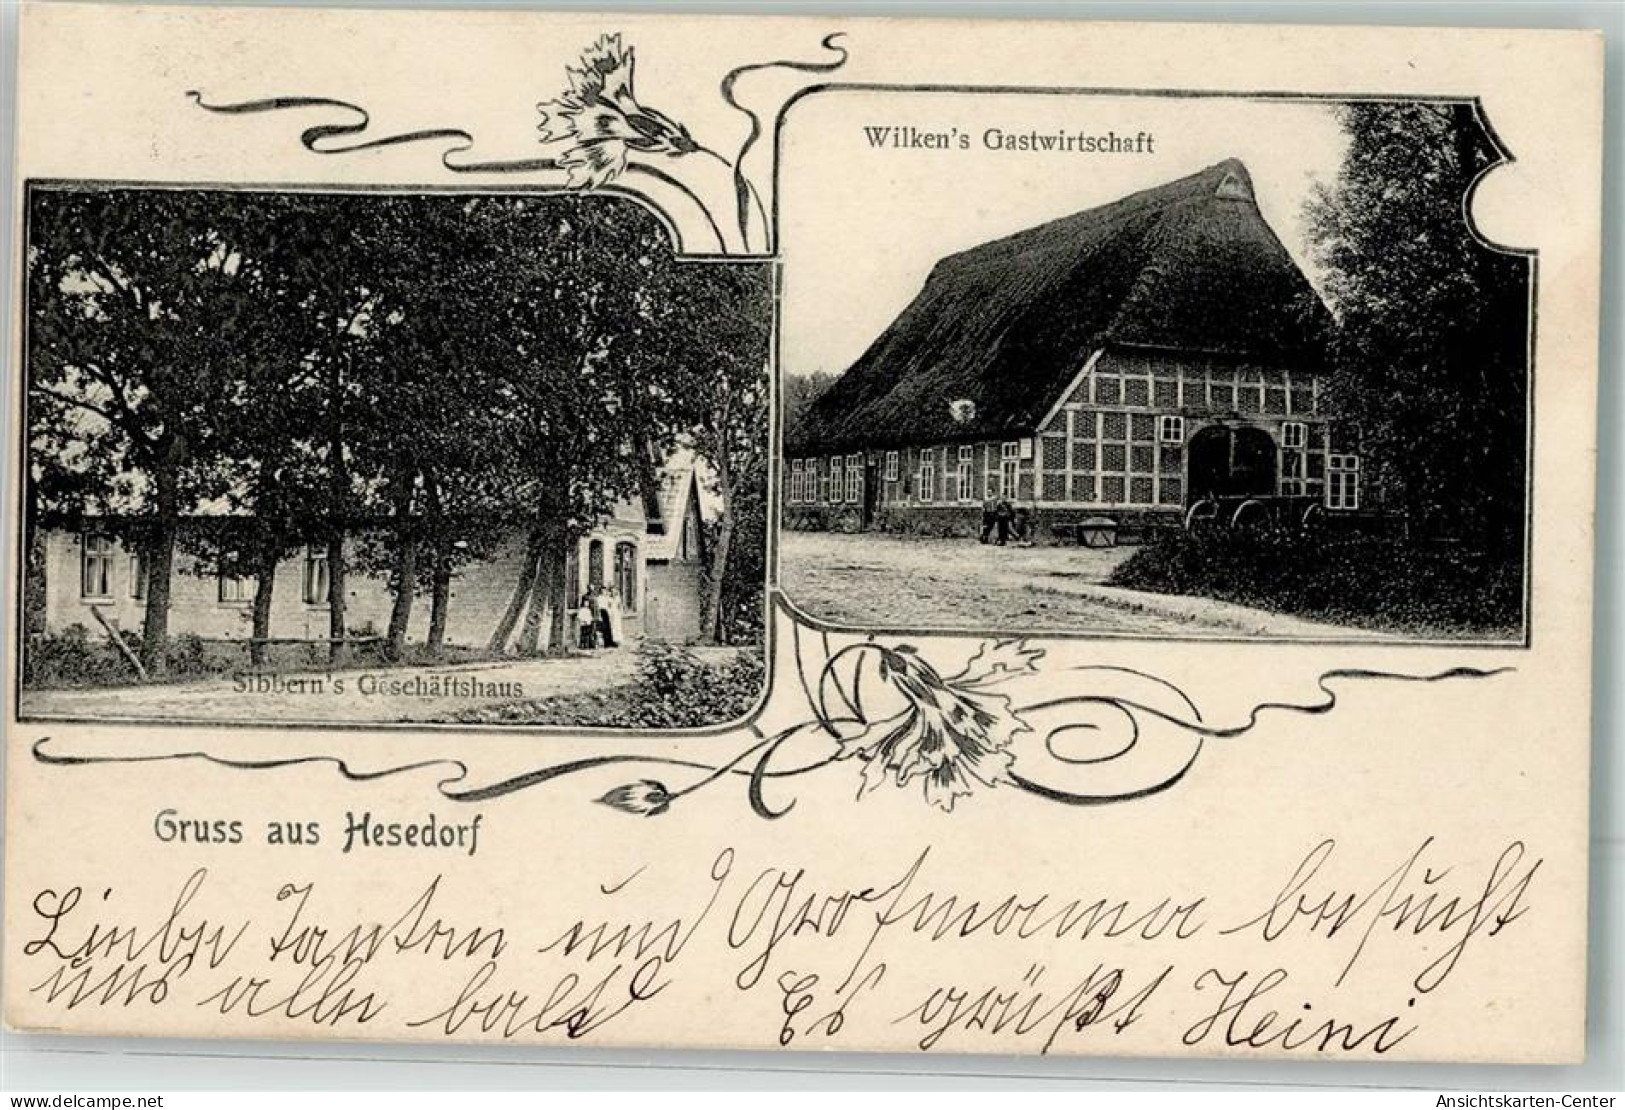 Wilken's Gastwirtschaft
Sibbern's Geschäftshaus
Gruss aus Hesedorf
Liebe Tanten und Großmama besucht
uns alle bald Es grüßt Heini
AnsichtskartenCenter on DELCAMPE.net
Ansichtskarten-Center